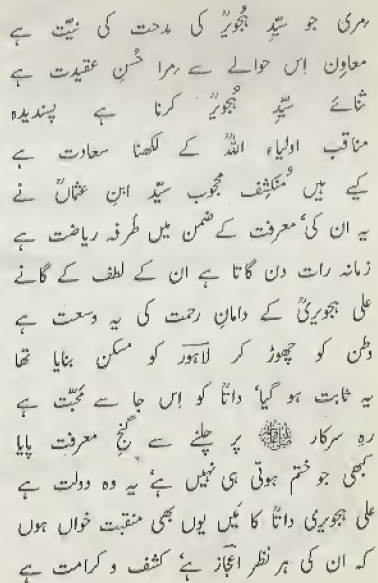 مری جو سیّدِ ہُجویرؒ کی مدحت کی نیّت ہے
معاون اِس حوالے سے مرا حُسنِ عقیدت ہے
ثنائے سیّدِ ہُجویرؒ کرنا ہے پسندیدہ
مناقب اولیاء اللہؒ کے لکھنا سعادت ہے
کیے ہیں مُنکشِف محجوب سیّد ابنِ عثماںؒ نے
یہ ان کی، معرفت کے ضمن میں طُرفہ ریاضت ہے
زمانہ رات دن گاتا ہے ان کے لطف کے گانے
علی ہجویریؒ کے دامانِ رحمت کی یہ وسعت ہے
وطن کو چھوڑ کر لاہور کو مسکن بنایا تھا
یہ ثابت ہو گیا، داتاؒ کو اِس جا سے مَحبّت ہے
رہِ سرکار ﷺ پر چلنے سے گنجِ معرفت پایا
کبھی جو ختم ہوتی ہی نہیں ہے، یہ وہ دولت ہے
علی ہجویری داتاؒ کا مَیں یوں بھی منقبت خواں ہوں
کہ ان کی ہر نظر اعجاز ہے، کشف و کرامت ہے